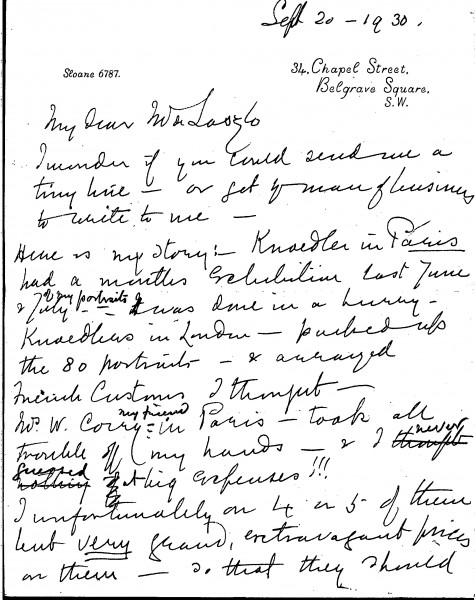 Sept 20 - 1930.
Sloane 6787.
34, Chapel Street,
Belgrave Square,
S.W.
My dear Mr de Laszlo
I wonder if you could send me a
tiny line - or get yr man of business
to write to me -
Here is my story :- Knoedler in Paris
had a months Exhibition last June
& July - of my portraits & was done in a hurry -
Knoedlers in London - packed up
the 80 portraits - & arranged
French Customs I thought -
Mrs. W. Corry - my friend in Paris - took all
trouble off my hands - & I thought never
guessed nothing of big expenses !!!
I unfortunately on 4 or 5 of them
put very grand, extravagant prices
on them - so that they should